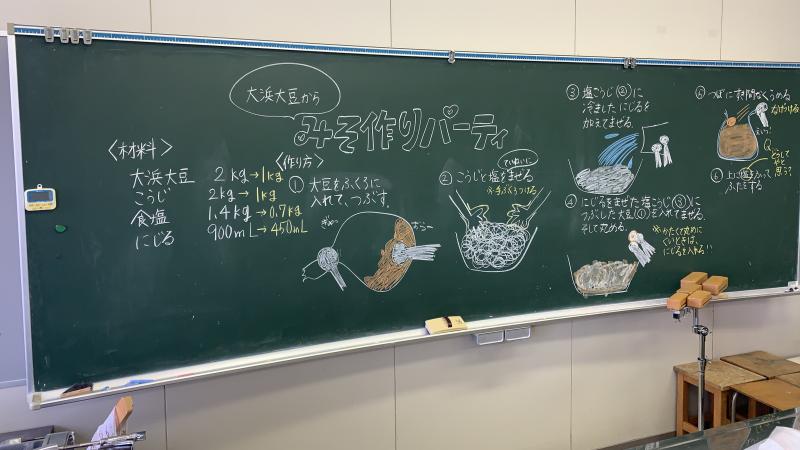 大浜大豆から
みそ作りパーティ
〈材料〉
大浜大豆 2kg→1kg
こうじ 2kg→1kg
食塩 1.4kg→0.7kg
にじる 900mL→450mL
〈作り方〉
① 大豆をふくろに
入れて、つぶす。
ぎゅっ
② こうじと塩をまぜる
ていねいに
③ 塩こうじ(②)に
冷ましたにじるを
加えてまぜる。
④ にじるをまぜた塩こうじ(③)に
つぶした大豆(①)を入れてまぜる。
そして丸める。
※かたくて丸めに
くいときは、
にじるを入れる!!
⑤ つぼにすき間なくうめる
なげつける
えいっ
Q.
どうして
やと
思う?
⑥ 上に塩をふって
ふたをする